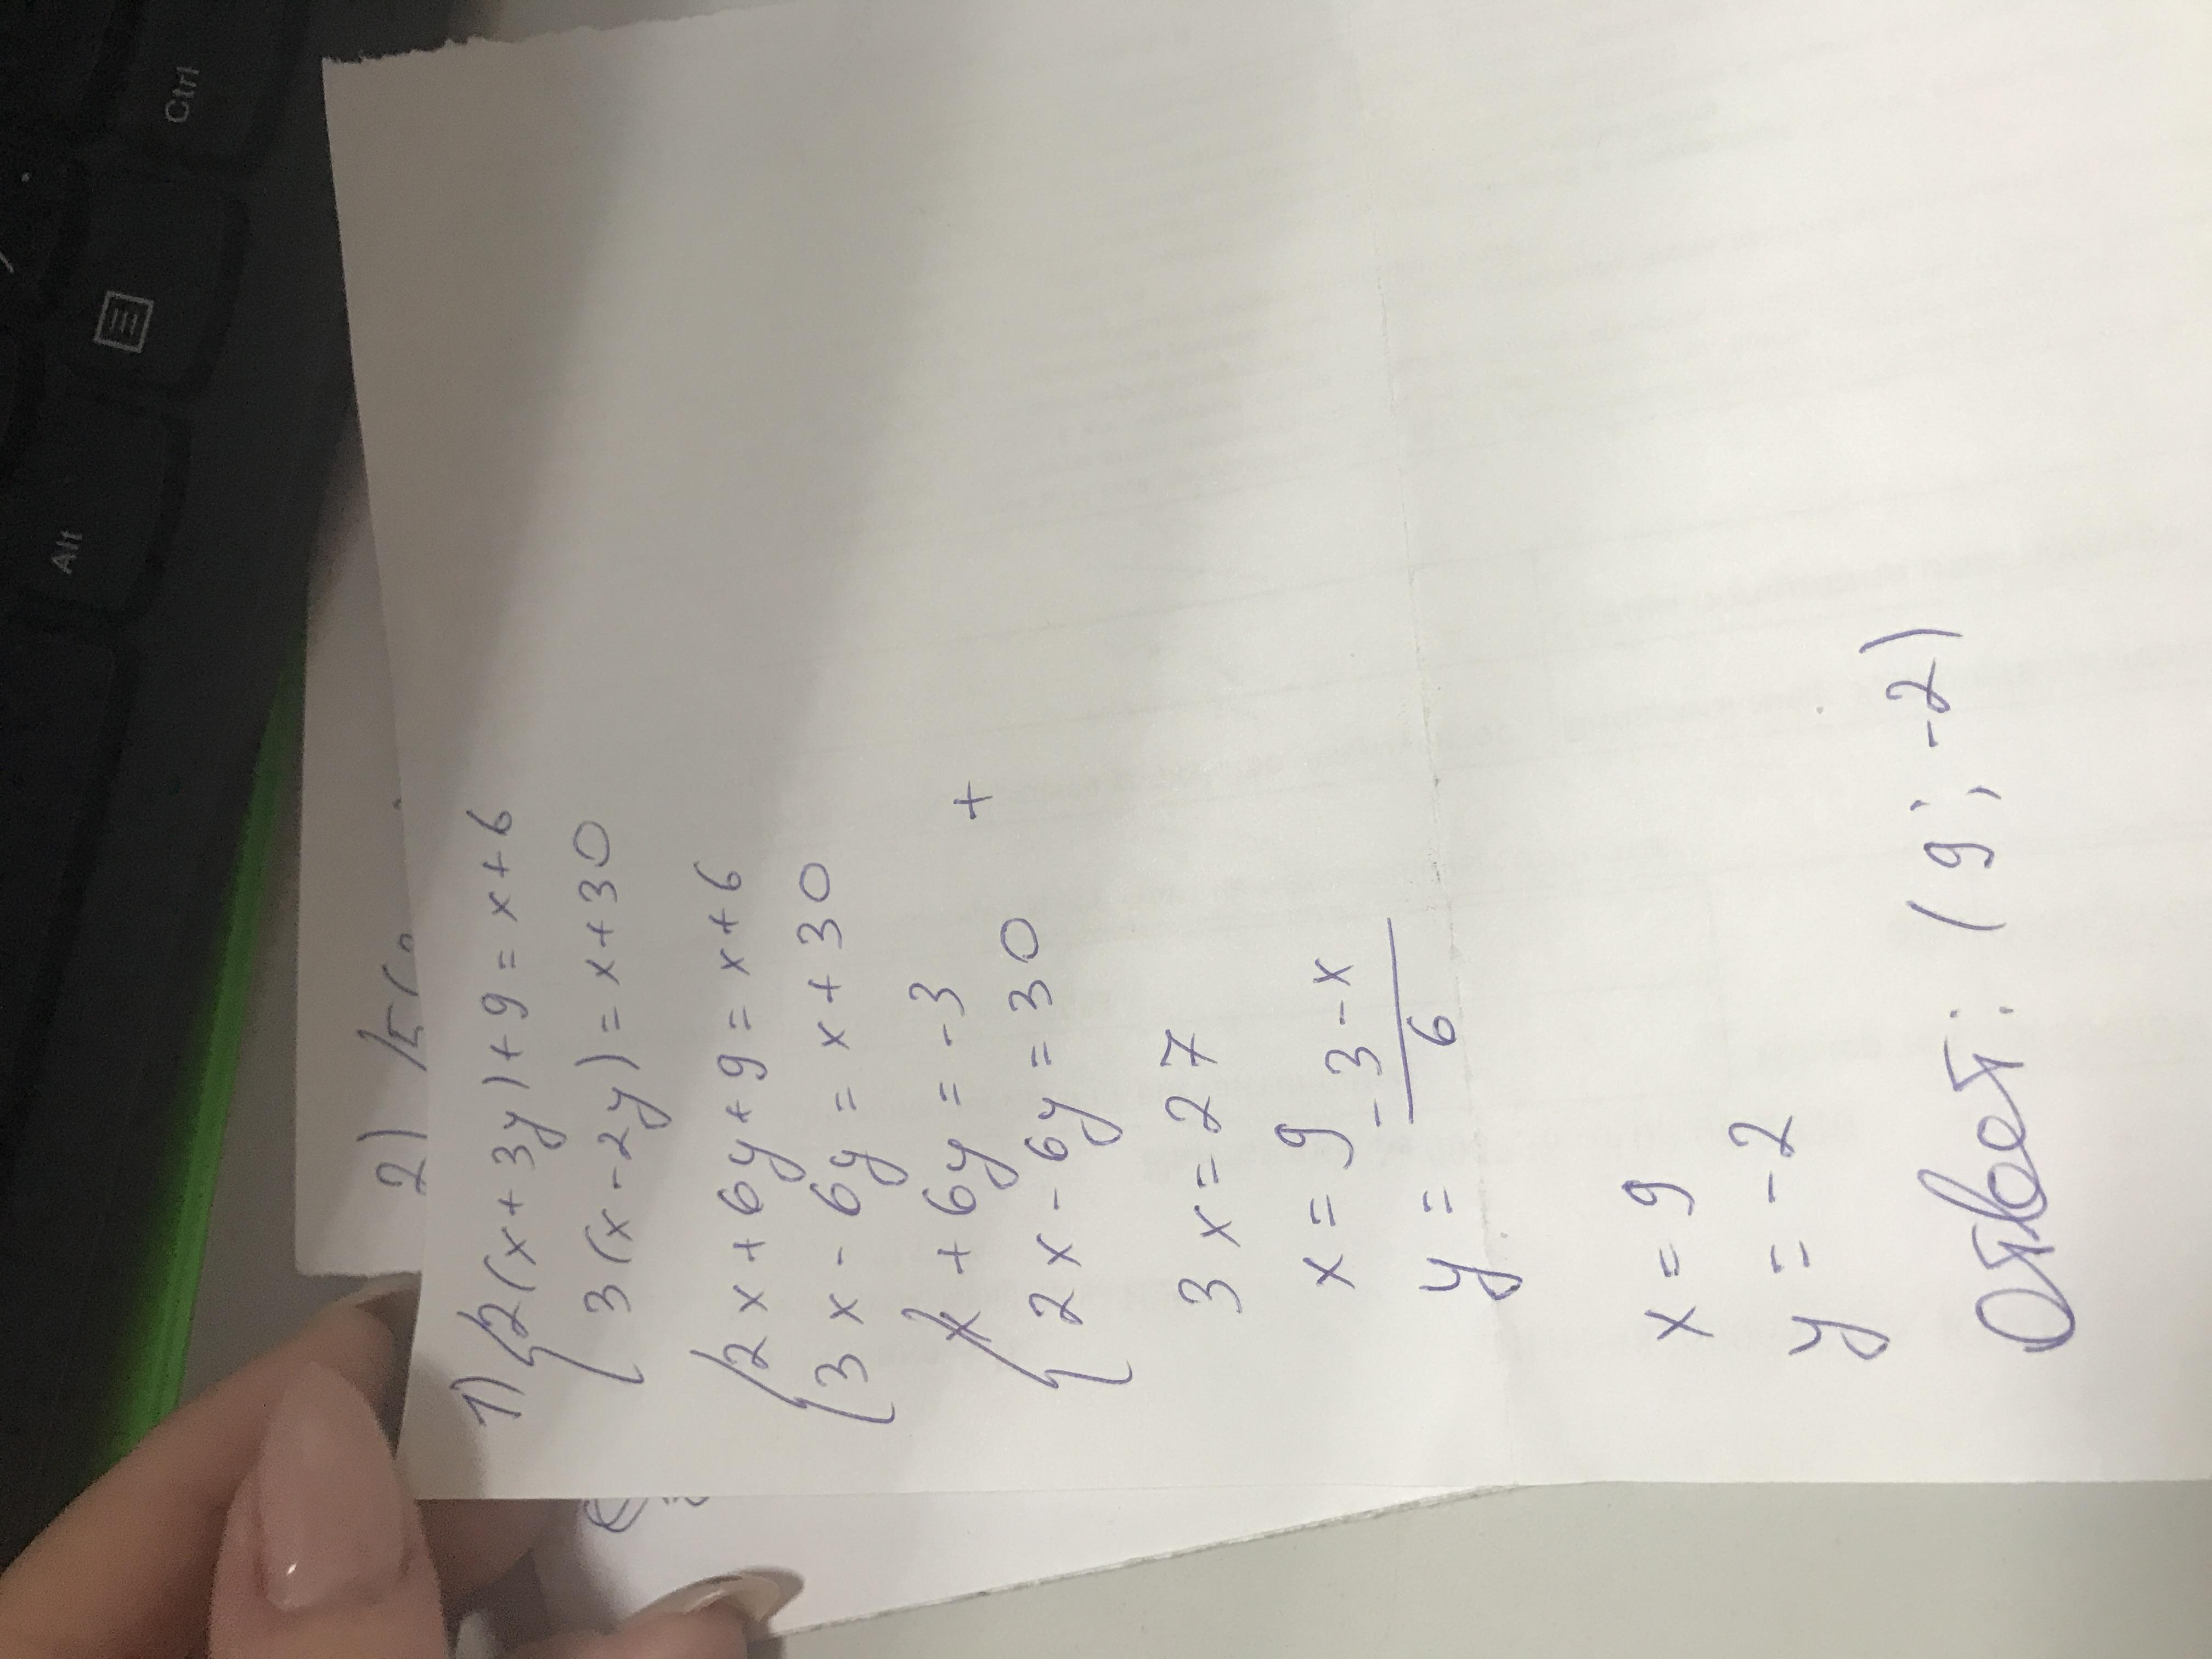 Ctrl
Alt
2)
1) {2(x+3y)+9=x+6
3(x-2y)=x+30
{2x+6y+9=x+6
3x-6y=x+30
{x+6y=-3
+
2x-6y=30
3x=27
x=9
y=\frac{-3-x}{6}
x=9
y=-2
Ответ: (9;-2)